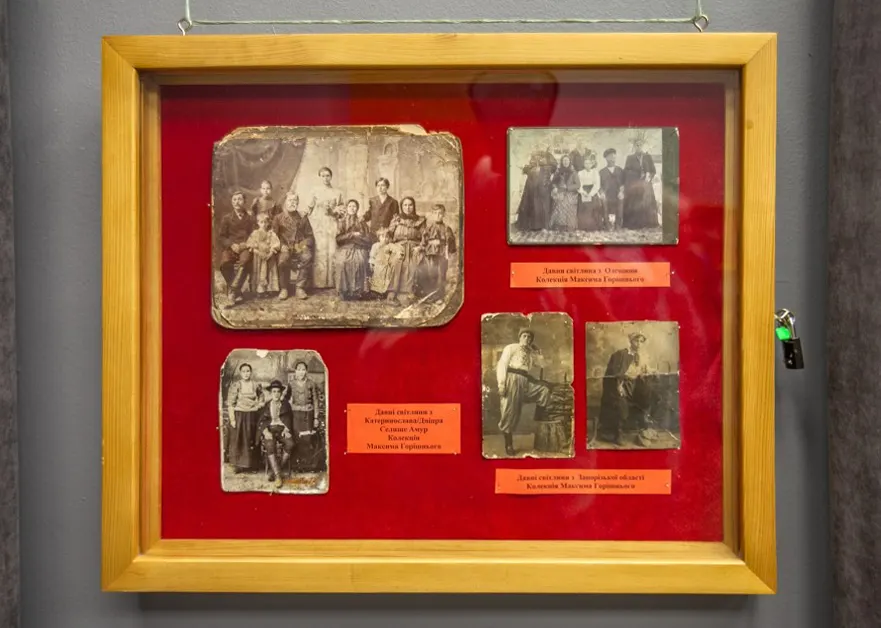 Давня світлина з
Колекція Максима Горішнього
Давні світлини з
Катеринослава/Дніпра
Селище Амур
Колекція
Максима Горішнього
Давні світлини з Запорізької області
Колекція Максима Горішнього